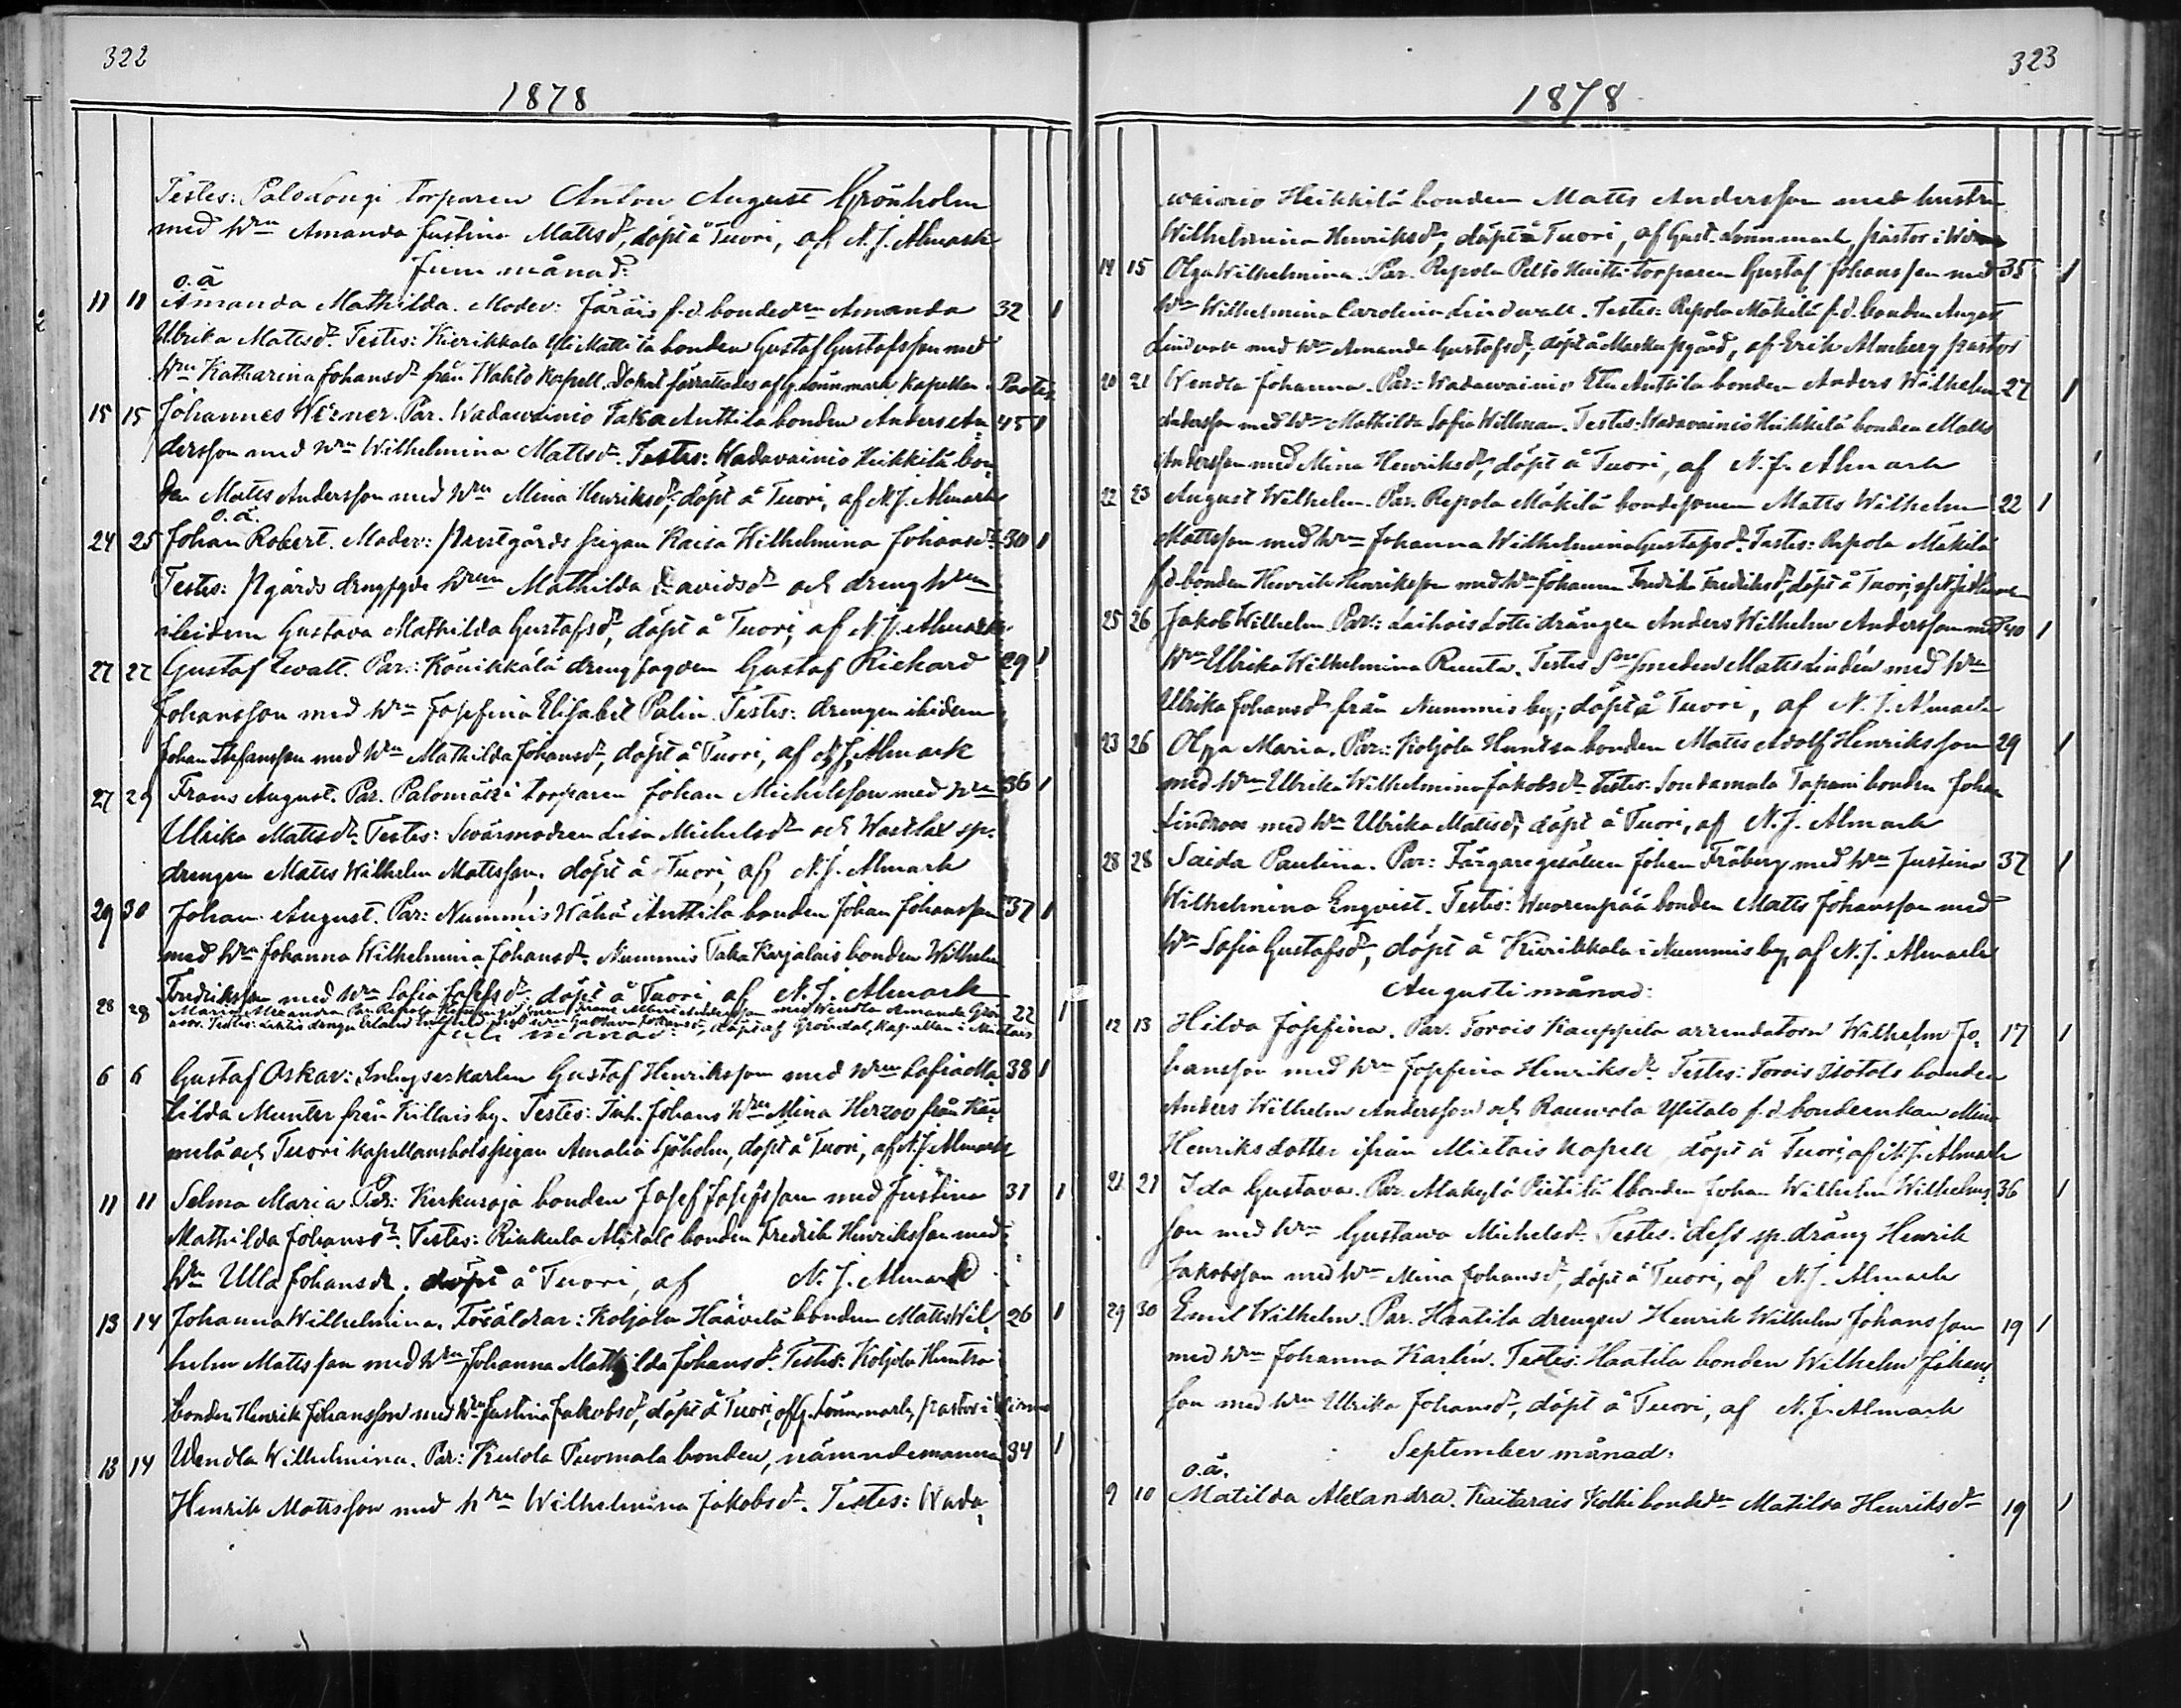 322
1878
Testes: torparen Anton August Grönholm
med hrn Amanda Justina Mattsdr, döpt å Tuori, af N. J. Almark
Juni månad:
o.ä
11 11 Amanda Mathilda. Moder: Järäis f.d. bondedrn Amanda 32 1
Ulrika Mattsdr. Testes: Kierikkala bonden Gustaf Gustafsson med
hru Katharina Johansdr från Wahto Kapell. Dopet förrättades af G. Lönnmark Kapellan
15 15 Johannes Werner. Par. Wadawainio Taka Anttila bonden Anders An 45 1
dersson med hru Wilhelmina Mattsdr. Testes: Wadavainio Heikkilä bon
den Matts Andersson med hru Mina Henriksdr, döpt å Tuori, af N. J. Almark
o.ä.
24 25 Johan Robert. Moder: Prestgårds pigan Kaisa Wilhelmina Johansdr 30 1
Testes: Pgårds hrun Mathilda Davidsdr och dreng hrun
ibidem Gustava Mathilda Gustafsdr, döpt å Tuori, af N. J. Almark
27 27 Gustaf Ewalt. Par: Könikkälä drengfogden Gustaf Richard 29 1
Johansson med hru Josefina Elisabet Palin. Testes: drengen ibidem
Johan Stefansson med hru Mathilda Johansdr, döpt å Tuori, af N. J. Almark
27 29 Frans August. Par. Palomäki torparen Johan Michelsson med hru 36 1
Ulrika Mattsdr. Testes: Svärmodren Lisa Michelsdr och sp.
drengen Matts Wilhelm Mattsson, döpt å Tuori, af N. J. Almark
29 30 Johan August. Par: Nummis Wähä Anttila bonden Johan Johansson 37 1
med hru Johanna Wilhelmina Johansdr. Nummis Taka Karjalais bonden Wilhelm
Fredriksson med hru Sofia Josefsdr döpt å Tuori af N. J. Almark
28 28 Maria Alexandra Par. Repola med Wendla Amanda Grön 22 1
roos. Testes: drengen Erland med hru Gustava döpt af Gröndal, Kapellan i
Juli månad:
6 6 Gustaf Oskar: Inhyseskarlen Gustaf Henriksson med hru Sofia Ma 38 1
tilda Munter från by. Testes: Inh. Johans hru Mina Herzov från Käm
melä och Tuori Kapellansbolspigan Amalia Sjöholm, döpt å Tuori, af N. J. Almark
11 11 Selma Maria. Par: Kerkuroja bonden Josef Josefsson med Justina 31 1
Mathilda Johansdr. Testes: Rinkula bonden Fredrik Henriksson med
hru Ulla Johansdr. döpt å Tuori, af N. J. Almark
13 14 Johanna Wilhelmina. Föräldrar: Koljola Häävelä bonden Matts Wil 26 1
helm Mattsson med hru Johanna Mathilda Johansdr. Testes: Koljola Huntra
bonden Henrik Johansson med hru Justina Jakobsdr, döpt å Tuori, af G. Lönnmark, pastor i
13 14 Wendla Wilhelmina. Par: Tuomala bonden, nämndemannen 34 1
Henrik Mattsson med hru Wilhelmina Jakobsdr. Testes: Wada
323
1878
wainio Heikkilä bonden Matts Andersson med hustru
Wilhelmina Henriksdr, döpt å Tuori, af Gust. Lönnmark, pastor i
14 15 Olga Wilhelmina. Par. Repola Pelto Heitti torparen Gustaf Johansson med 35 1
hru Wilhelmina Carolina Lindwall. Testes: Repola Mäkilä f.d. bonden August
Lindwall med hru Amanda Gustafsdr, döpt å Masku pgård, af Erik Almberg pastor
20 21 Wendla Johanna. Par: Wadawainio Etu Anttila bonden Anders Wilhelm 27 1
Andersson med hru Mathilda Sofia Willman. Testes: Wadavainio Heikkilä bonden Matts
Andersson med Mina Henriksdr, döpt å Tuori, af N. J. Almark
22 23 August Wilhelm. Par. Repola Mäkilä bondesonen Matts Wilhelm 22 1
Mattsson med hru Johanna Wilhelmina Gustafsdr. Testes: Repola Mäkilä
f.d. bonden Henrik Henriksson med hru Johanna Fredrika Fredriksdr, döpt å Tuori, af N. J. Almark
25 26 Jakob Wilhelm. Par: Laihois Lotti drängen Anders Wilhelm Andersson med 40 1
hru Ulrika Wilhelmina Runta. Testes Smeden Matts Lindén med hru
Ulrika Johansdr från Nummis by; döpt å Tuori, af N. J. Almark
23 26 Olga Maria. Par: Koljola Huntra bonden Matts Adolf Henriksson 29 1
med hru Ulrika Wilhelmina Jakobsdr. Testes: Sondamala Tapani bonden Johan
Lindroos med hru Ulrika Mattsdr, döpt å Tuori, af N. J. Almark
28 28 Saida Paulina. Par: Färgaregesällen Johan Fröberg med hru Justina 37 1
Wilhelmina Enqvist. Testes: Wuorenpää bonden Matts Johansson med
hru Sofia Gustafsdr, döpt å Kierikkala i Nummis by, af N. J. Almark
Augusti månad:
12 13 Hilda Josefina. Par. Torois Kauppila arrendatorn Wilhelm Jo 17 1
hansson med hru Josefina Henriksdr. Testes: Torois Isotalo bonden
Anders Wilhelm Andersson och Rauvola Ylitalo f.d. bondeenkan Mina
Henriksdotter ifrån Mietois Kapell, döpt å Tuori, af N. J. Almark
21 21 Ida Gustava. Par. Makylä Pietilä bonden Johan Wilhelm Wilhelms 36 1
son med hru Gustava Michelsdr. Testes: dess sp. dräng Henrik
Jakobsson med hru Mina Johansdr, döpt å Tuori, af N. J. Almark
29 30 Emil Wilhelm. Par. Haatila drengen Henrik Wilhelm Johansson 19 1
med hru Johanna Karlin. Testes: Haatila bonden Wilhelm Johans
son med hru Ulrika Johansdr, döpt å Tuori, af N. J. Almark
September månad:
o.ä.
9 10 Matilda Alexandra. Kaitarais Kolki bondedrn Matilda Henriksdr 19 1